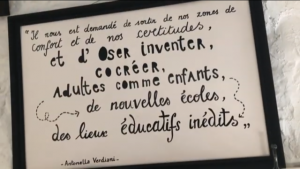 "Il nous est demandé de sortir de nos zones de
confort et de nos certitudes,
et d'Oser inventer,
cocréer,
Adultes comme enfants,
de nouvelles écoles,
des lieux éducatifs inédits"
- Antonella Verdiani -